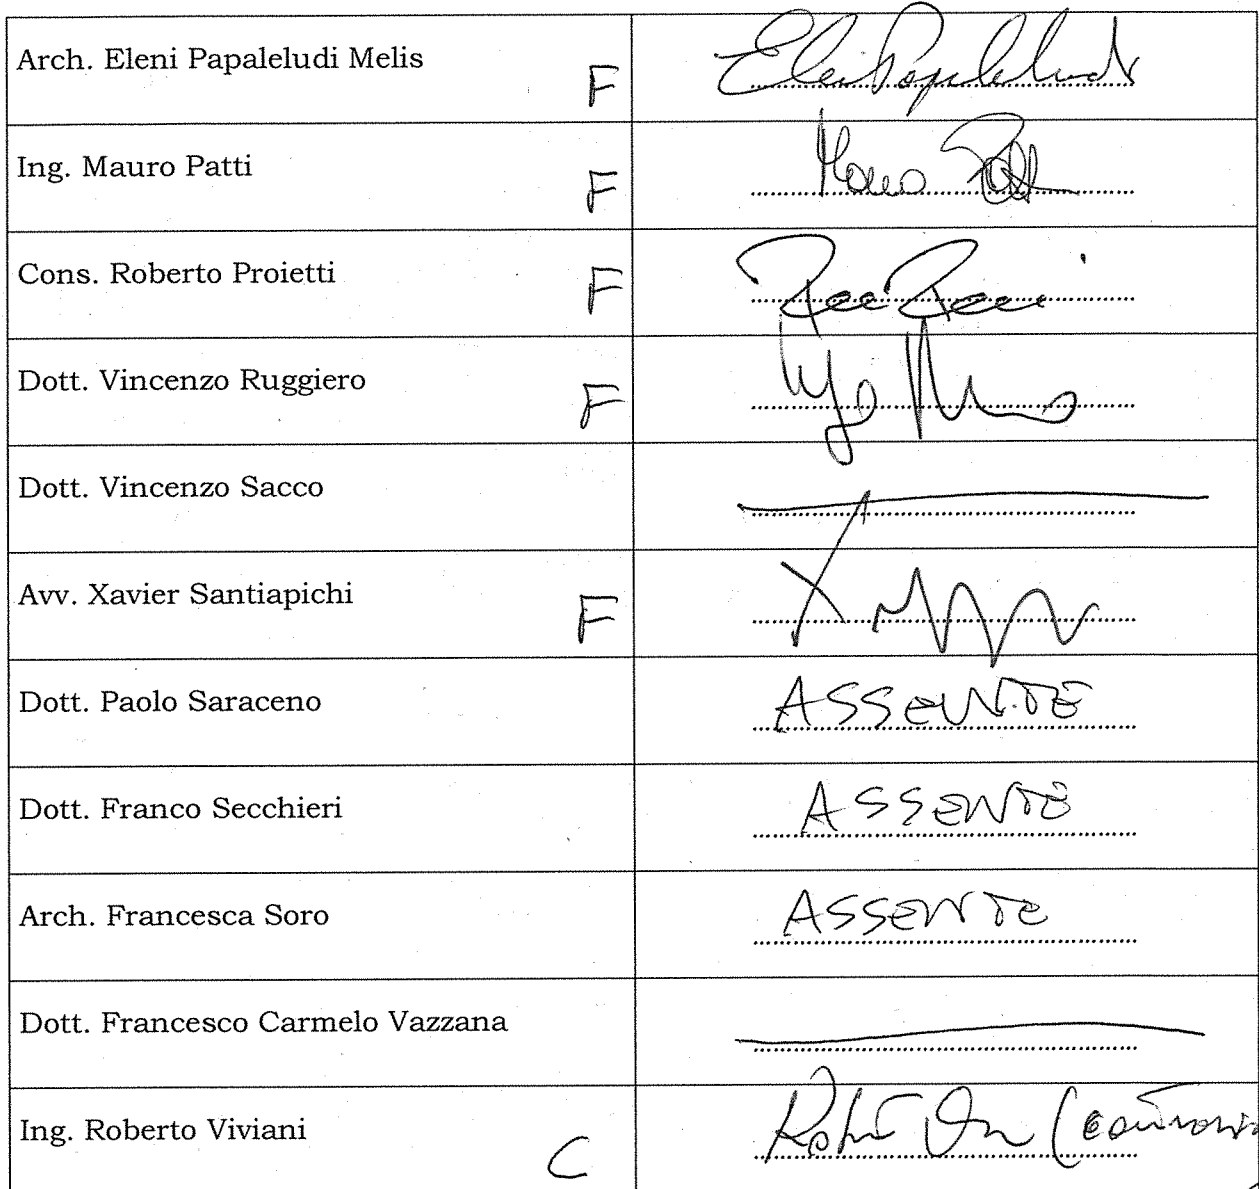 Arch. Eleni Papaleludi Melis F Eleni Papaleludi
Ing. Mauro Patti F Mauro Patti
Cons. Roberto Proietti F
Dott. Vincenzo Ruggiero F
Dott. Vincenzo Sacco
Avv. Xavier Santiapichi F
Dott. Paolo Saraceno ASSENTE
Dott. Franco Secchieri ASSENTE
Arch. Francesca Soro ASSENTE
Dott. Francesco Carmelo Vazzana
Ing. Roberto Viviani C